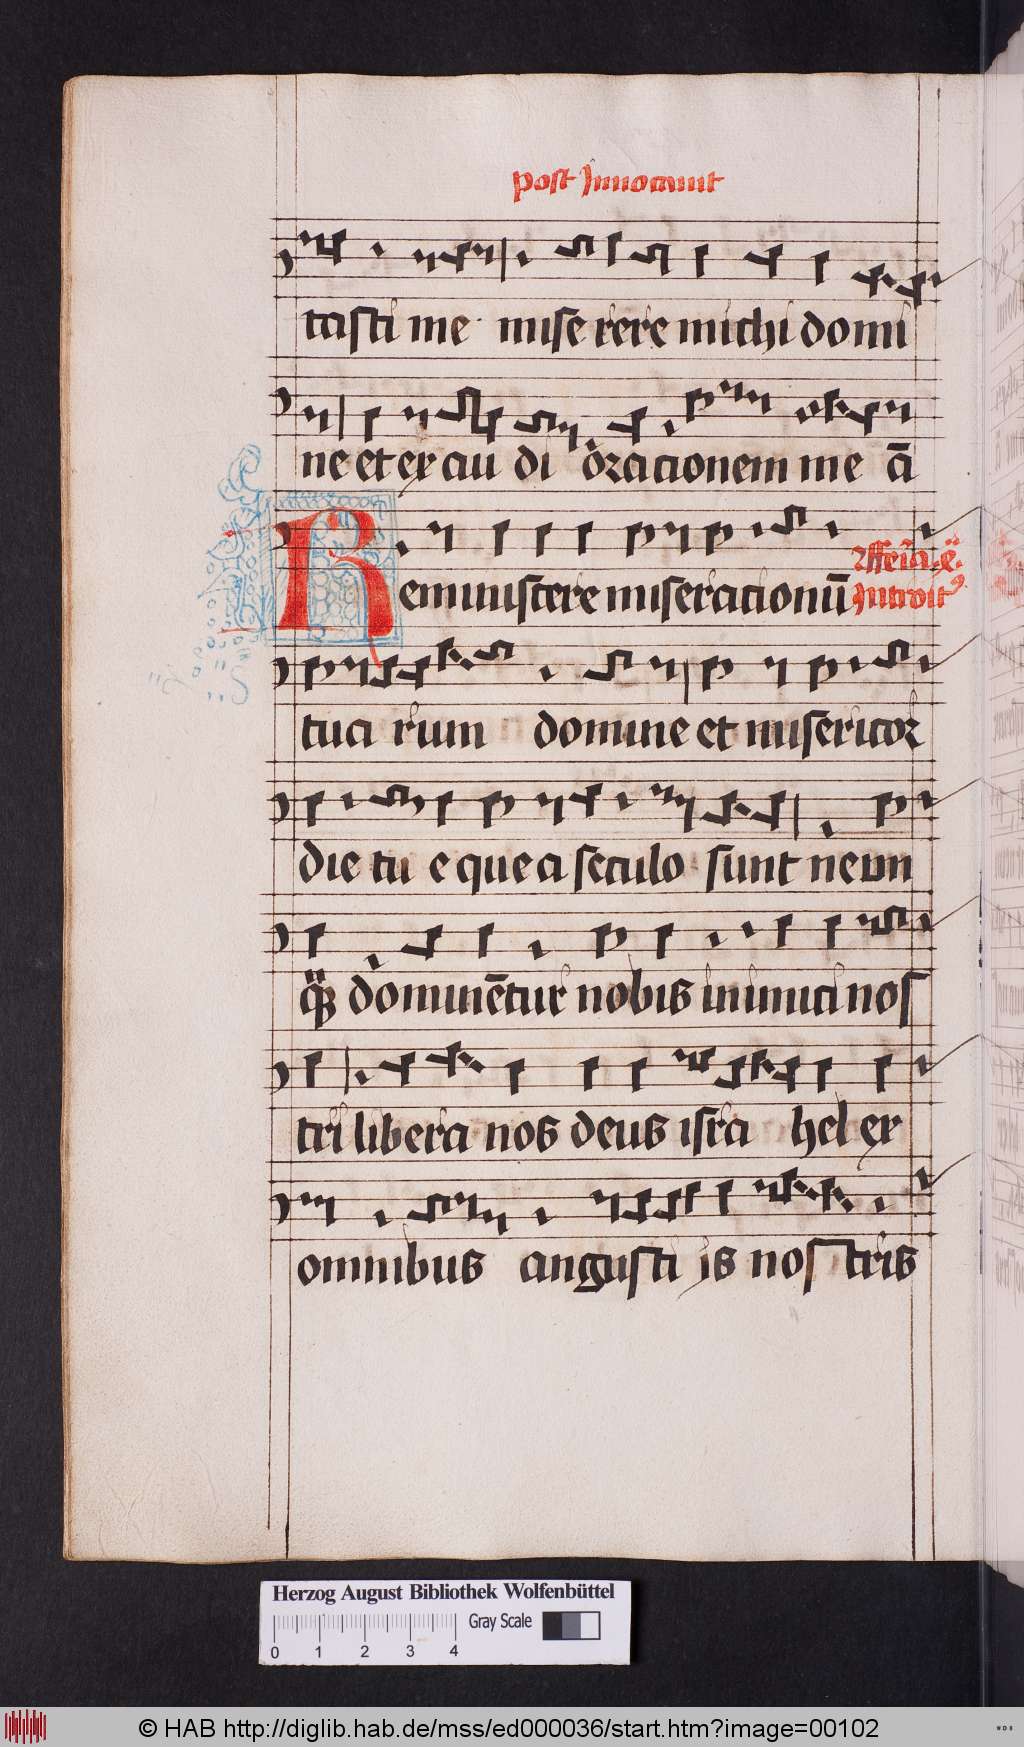 post Inuocauit
tasti me miserere michi domi
ne et exaudi oracionem meā
Reminiscere miseracionū
Introit9
tuarum domine et misericor
die tue que a seculo sunt ne vn
dominētur nobis inimici nos
tri libera nos deus israhel ex
omnibus angustiis nostris
Herzog August Bibliothek Wolfenbüttel
Gray Scale
0 1 2 3 4
© HAB http://diglib.hab.de/mss/ed000036/start.htm?image=00102